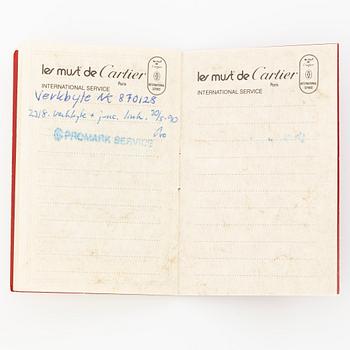 les must de Cartier
Paris
INTERNATIONAL SERVICE
Verkbyte NK 870128
2318. Verkbyte + junc. link. 20/5-90
PROMARK SERVICE
les must de Cartier
Paris
INTERNATIONAL SERVICE